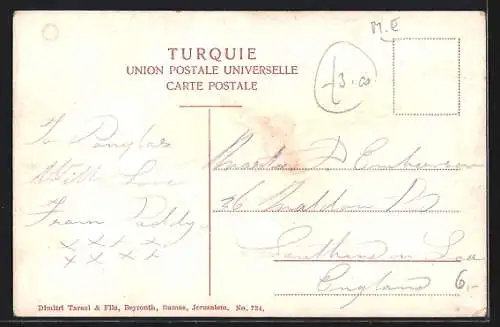 M.E
TURQUIE
UNION POSTALE UNIVERSELLE
CARTE POSTALE
3.00
To Douglas
With Love
From Daddy
x x x x x
x x x x x
Master D
26 Maldon Rd
Southend on Sea
England
6.-
Dimitri Tarazi & Fils, Beyrouth, Damas, Jerusalem. No. 724.